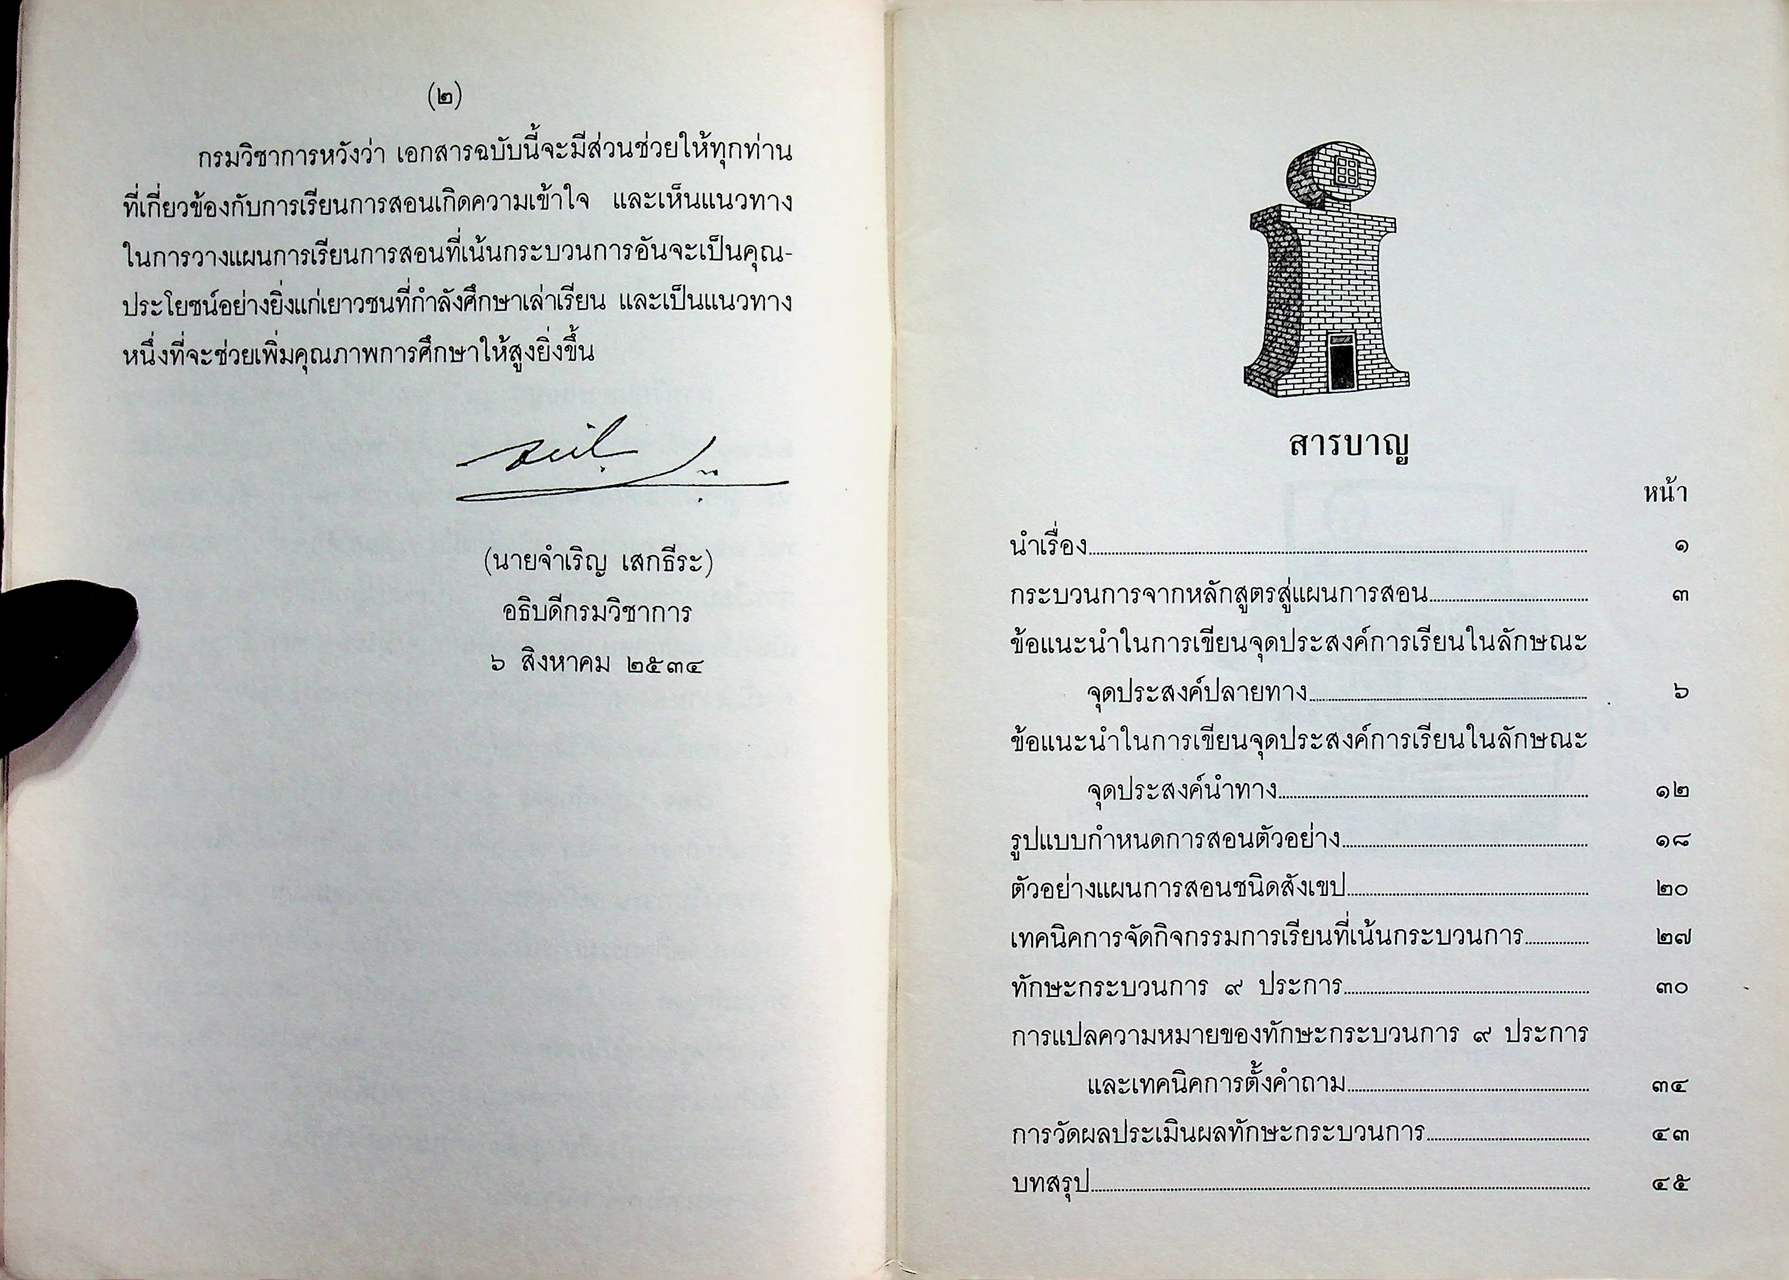 (๒)
กรมวิชาการหวังว่า เอกสารฉบับนี้จะมีส่วนช่วยให้ทุกท่าน
ที่เกี่ยวข้องกับการเรียนการสอนเกิดความเข้าใจ และเห็นแนวทาง
ในการวางแผนการเรียนการสอนที่เน้นกระบวนการอันจะเป็นคุณ-
ประโยชน์อย่างยิ่งแก่เยาวชนที่กำลังศึกษาเล่าเรียน และเป็นแนวทาง
หนึ่งที่จะช่วยเพิ่มคุณภาพการศึกษาให้สูงยิ่งขึ้น
(นายจำเริญ เสกธีระ)
อธิบดีกรมวิชาการ
๖ สิงหาคม ๒๕๓๔
สารบาญ
หน้า
นำเรื่อง ๑
กระบวนการจากหลักสูตรสู่แผนการสอน ๓
ข้อแนะนำในการเขียนจุดประสงค์การเรียนในลักษณะ
จุดประสงค์ปลายทาง ๖
ข้อแนะนำในการเขียนจุดประสงค์การเรียนในลักษณะ
จุดประสงค์นำทาง ๑๒
รูปแบบกำหนดการสอนตัวอย่าง ๑๘
ตัวอย่างแผนการสอนชนิดสังเขป ๒๐
เทคนิคการจัดกิจกรรมการเรียนที่เน้นกระบวนการ ๒๗
ทักษะกระบวนการ ๙ ประการ ๓๐
การแปลความหมายของทักษะกระบวนการ ๙ ประการ
และเทคนิคการตั้งคำถาม ๓๔
การวัดผลประเมินผลทักษะกระบวนการ ๔๓
บทสรุป ๔๕